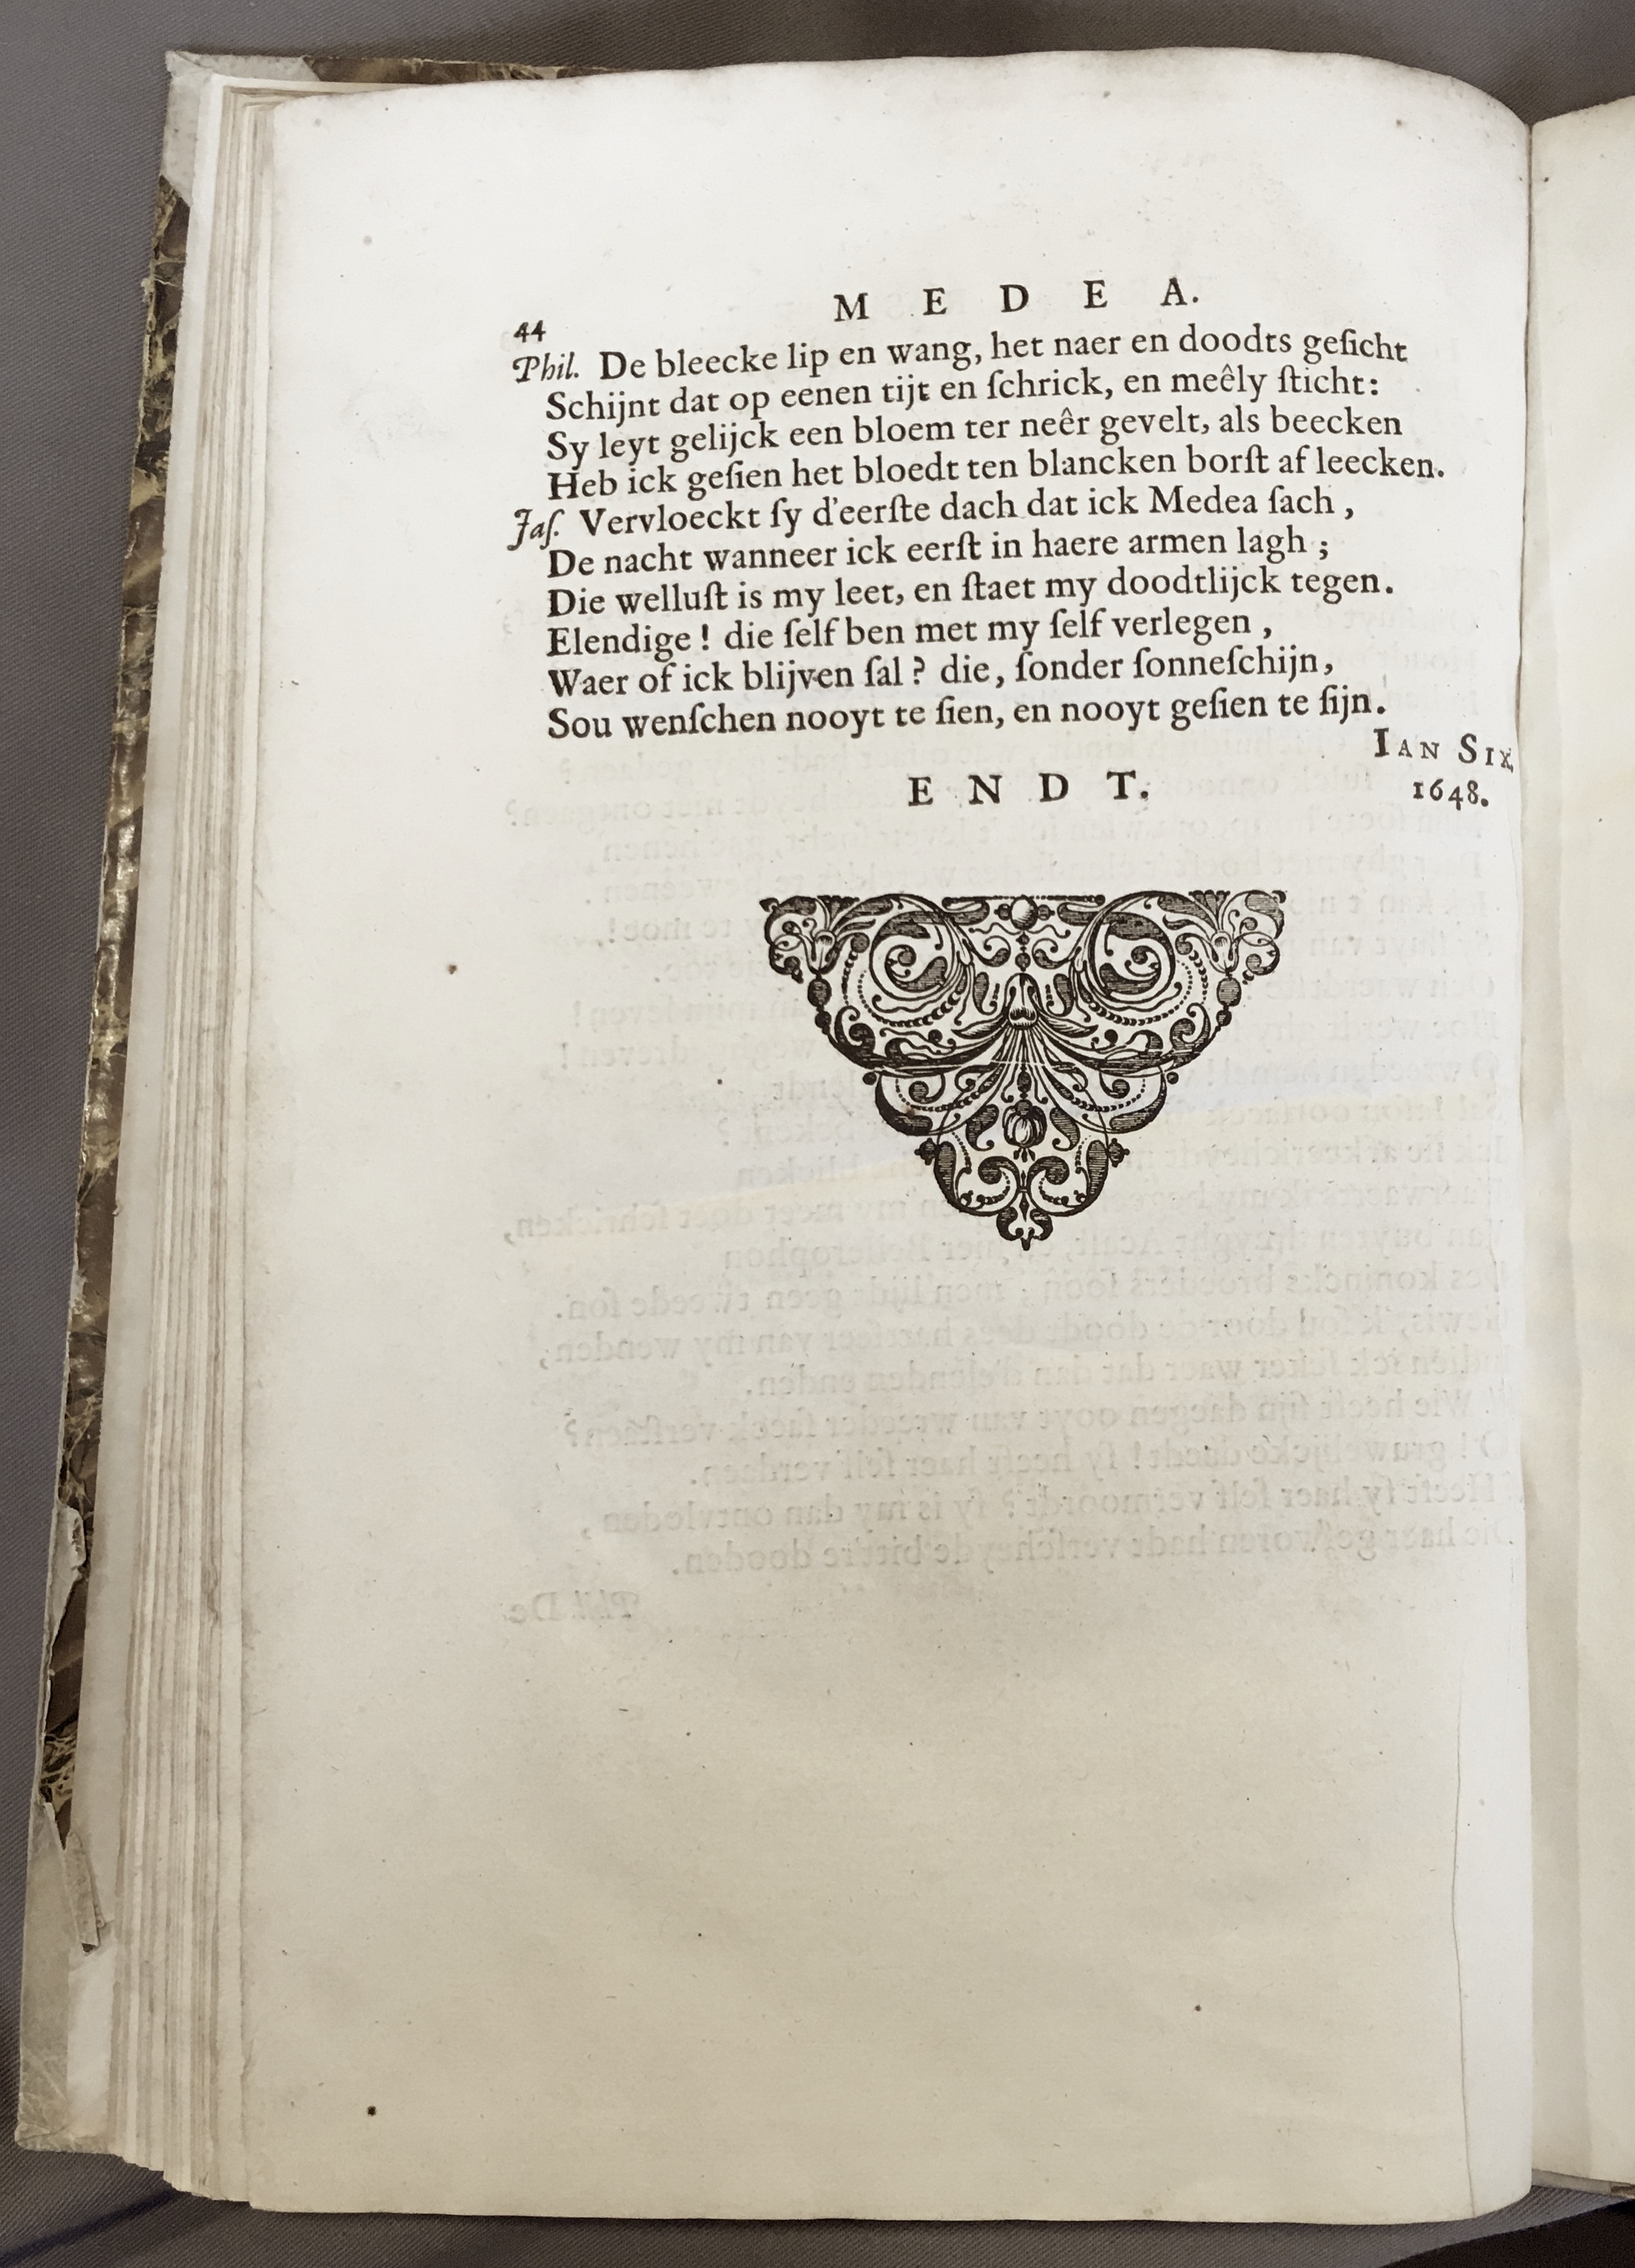 M E D E A.
44
Phil. De bleecke lip en wang, het naer en doodts geſicht
Schijnt dat op eenen tijt en ſchrick, en meêly ſticht:
Sy leyt gelijck een bloem ter neêr gevelt, als beecken
Heb ick geſien het bloedt ten blancken borſt af leecken.
Jaſ. Vervloeckt ſy d'eerſte dach dat ick Medea ſach,
De nacht wanneer ick eerſt in haere armen lagh;
Die welluſt is my leet, en ſtaet my doodtlijck tegen.
Elendige! die ſelf ben met my ſelf verlegen,
Waer of ick blijven ſal? die, ſonder ſonneſchijn,
Sou wenſchen nooyt te ſien, en nooyt geſien te ſijn.
IAN SIX,
E N D T.
1648.